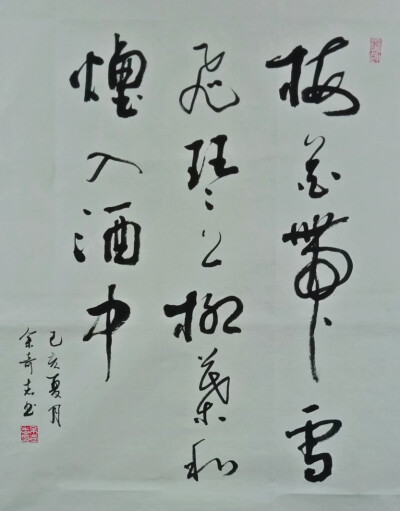 梅花帶雪
飛琴上柳葉和
煙入酒中
己亥夏月
余奇志书